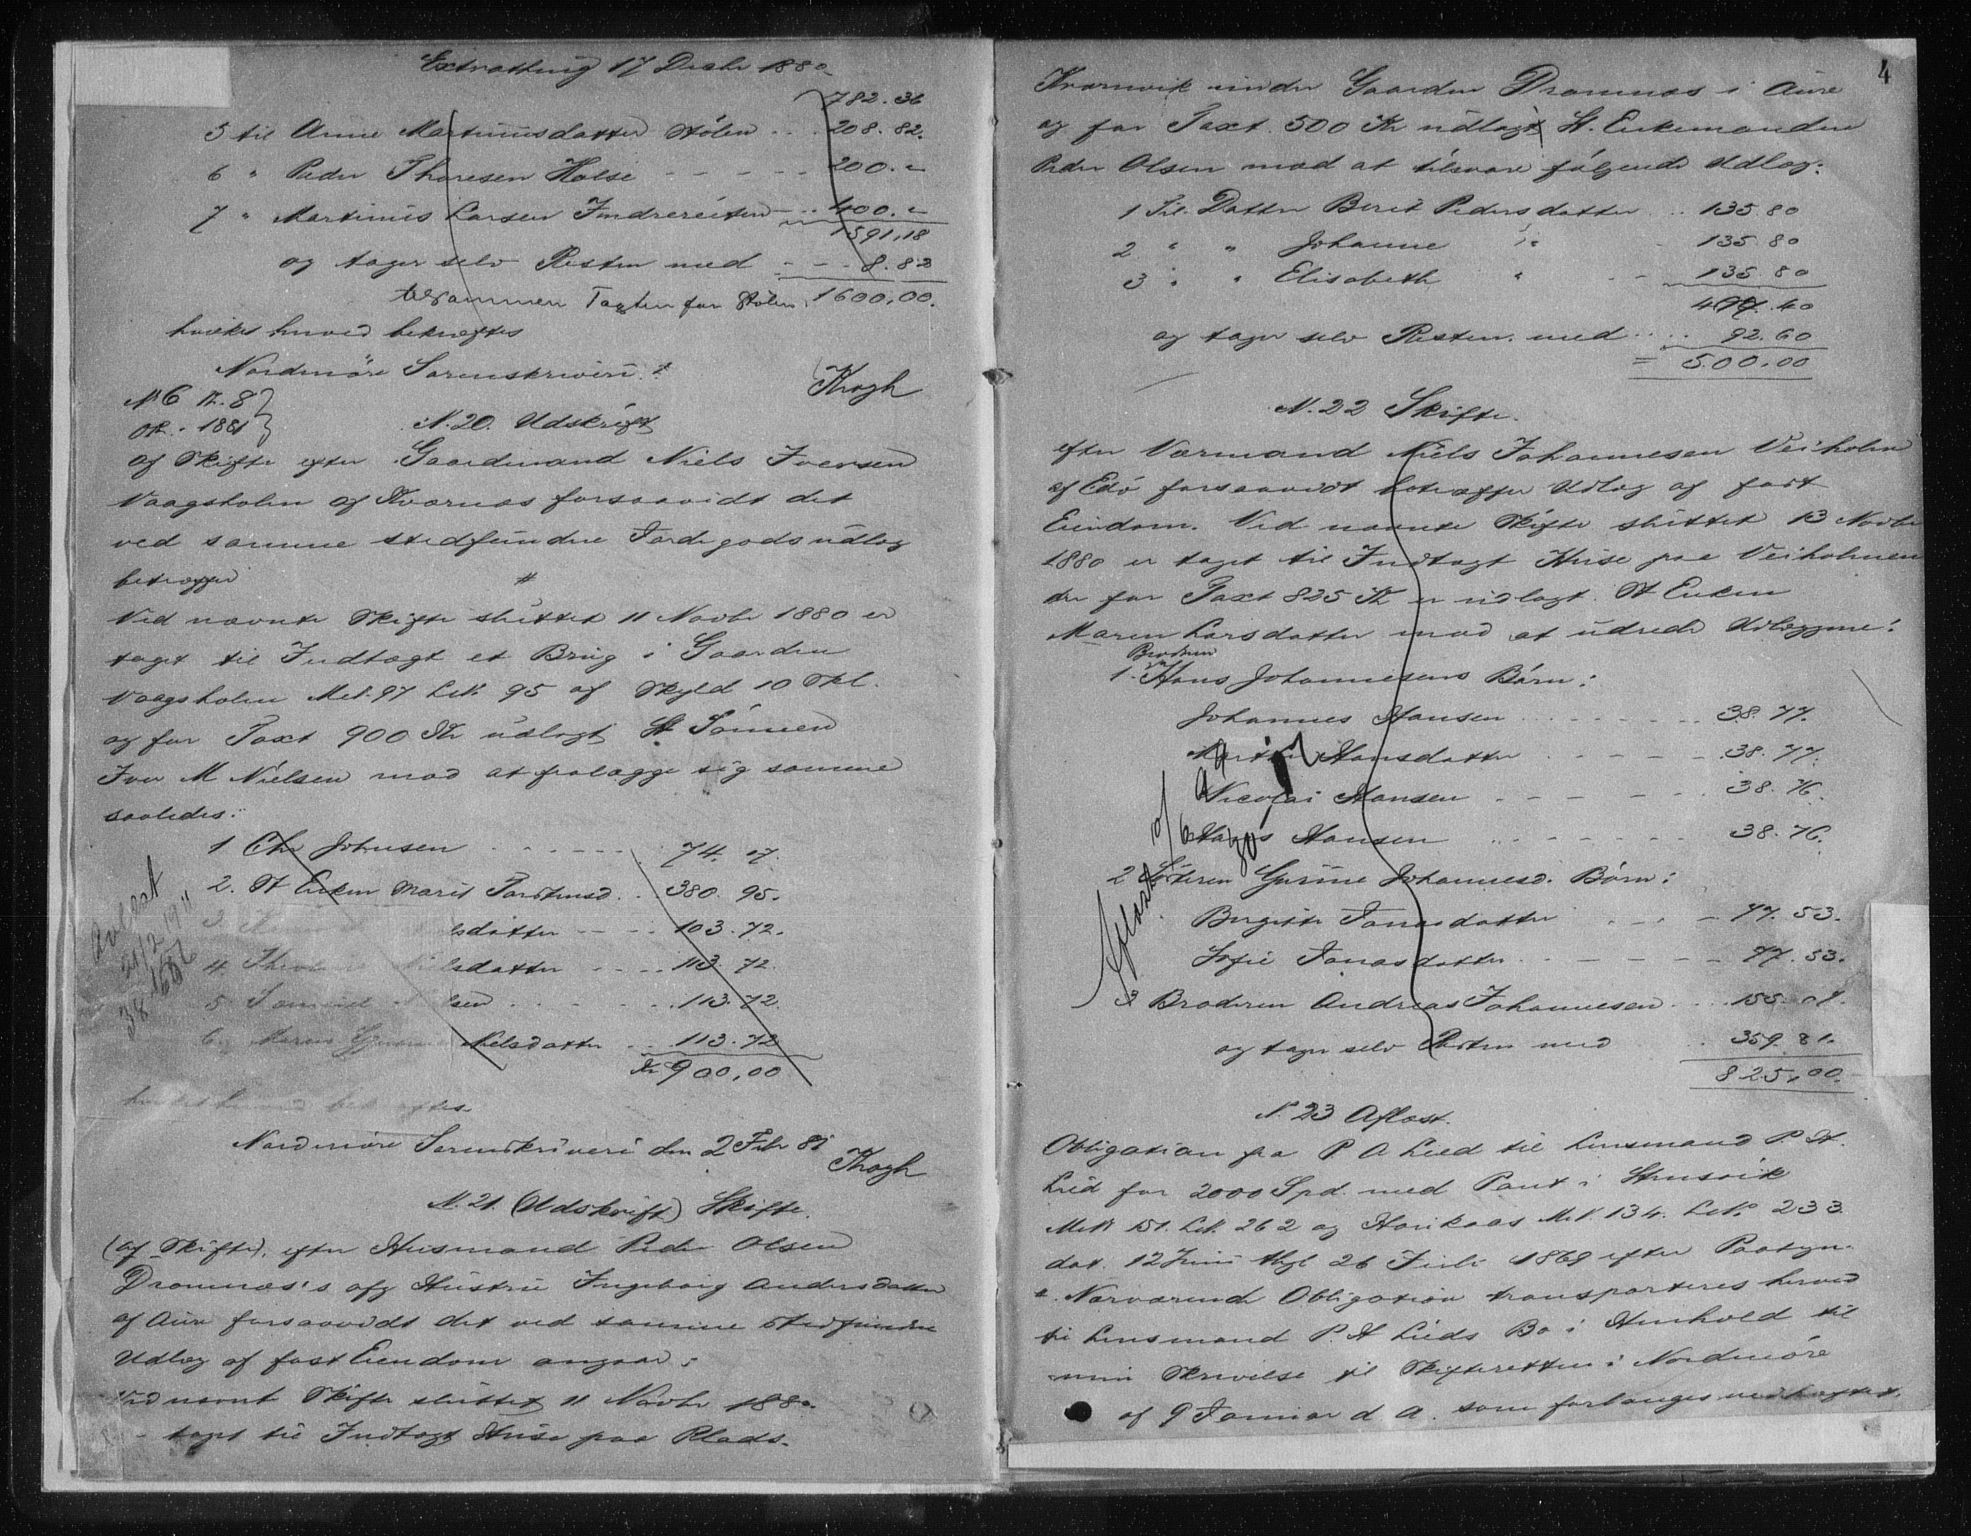 Extrathing 17 Decbr 1880
782.36
5 til Anne Martinusdatter Stölen . . . 208.82.
6 " Peder Thoresen Halse - - - - - 200. "
7 " Martinus Larsen Indrereiten - . . 400. "
1591,18
og tager selv Resten med - - - 8.82
tilsammen Taxten for Stölen. 1600,00.
hvilket herved bekræftes
Nordmöre Sorenskriveri.
Krogh
N. 20. Udskrift
af Skifte efter Gaardmand Niels Iversen
Vaagsholm af Kværnæs forsaavidt det
ved samme stedfundne Jordegodsudlæg
betræffer
Ved nævnte Skifte sluttet 11 Novbr 1880 er
taget til Indtægt et Brug i Gaarden
Vaagsholm Mat. 97 Lit. 95 af Skyld 10 Skl.
og for Taxt 900 Kr udlagt St. Sönnen
Iver M Nielsen mod at fralægge sig samme
saaledes:
1 Chr Johnsen . . . . . . 74. 17.
2. St Enken Marit Tardtensd. . . 380. 95.
3 lsdatter - - - - 103.72.
4. Nielsdatter - - - - 113.72.
5 lsen . . . . . . . 113.72.
6. Maren Nielsdatter . . . 113.72
Kr 900,00
hvilket herved bekræftes.
Nordmöre Sorenskriveri den 2 Febr 81
Krogh
N. 21. (Udskrift) Skifte.
(af Skifte), efter Husmand Peder Olsen
Dromnæs's afg Hustru Ingeborg Andersdatter
af Aure forsaavidt det ved samme stedfundne
Udlæg af fast Eiendom angaar:
Ved nævnt Skifte sluttet 11 Novbr 1880
taget til Indtægt Huse paa Plads.
4
Kvernvik under Gaarden Dromnæs i Aure
og for Taxt 500 Kr udlagt St. Enkemanden
Peder Olsen mod at tilsvare fölgende Udlæg:
1 Til Datter Berit Pedersdatter . . 135.80
2 " " Johanne " 135.80
3 " " Elisabeth " - - 135.80
407.40
og tager selv Resten med . . . . 92.60
= 500.00
N. 22 Skifte.
efter Værmand Niels Johannesen Veiholm
af Edö forsaavidt betræffer Udlæg af fast
Eiendom. Ved nævnte Skifte sluttet 13 Novbr
1880 er taget til Indtægt Huse paa Veiholmen
der for Taxt 825 Kr er udlagt St Enken
Maren Larsdatter mod at udrede Udlæggene:
Broderen
1. Hans Johannesens Börn:
Johannes Hansen . . . . . . . 38.77.
Hansdatter - - - - - 38.77.
Nicolai Hansen - - - - - - 38.76.
Hans Hansen . . - - - - - - 38.76.
2 Sösteren Gurine Johannesd. Börn:
Birgitte Jonasdatter . . . - 77.53.
Sofie Jonasdatter . - - - - - 77.53.
3 Broderen Andreas Johannesen . . . . 155.07.
og tager selv Resten med . 359.81.
825,00.
Aflæst
N. 23 Aflæst.
Obligation fra P A Lied til Lensmand P H.
Lied for 2000 Spd. med Pant i
Mat. 151. Lit. 262 og Mat. 134. Lit. 233.
dat. 12 Juni thgl 26 1869 efter
Nærværende Obligation transporteres herved
til Lensmand P. H Lieds Bo i Henhold til
min Skrivelse til Skifteretten i Nordmöre
af 9 Januar d A. som forlanges vedheftet.